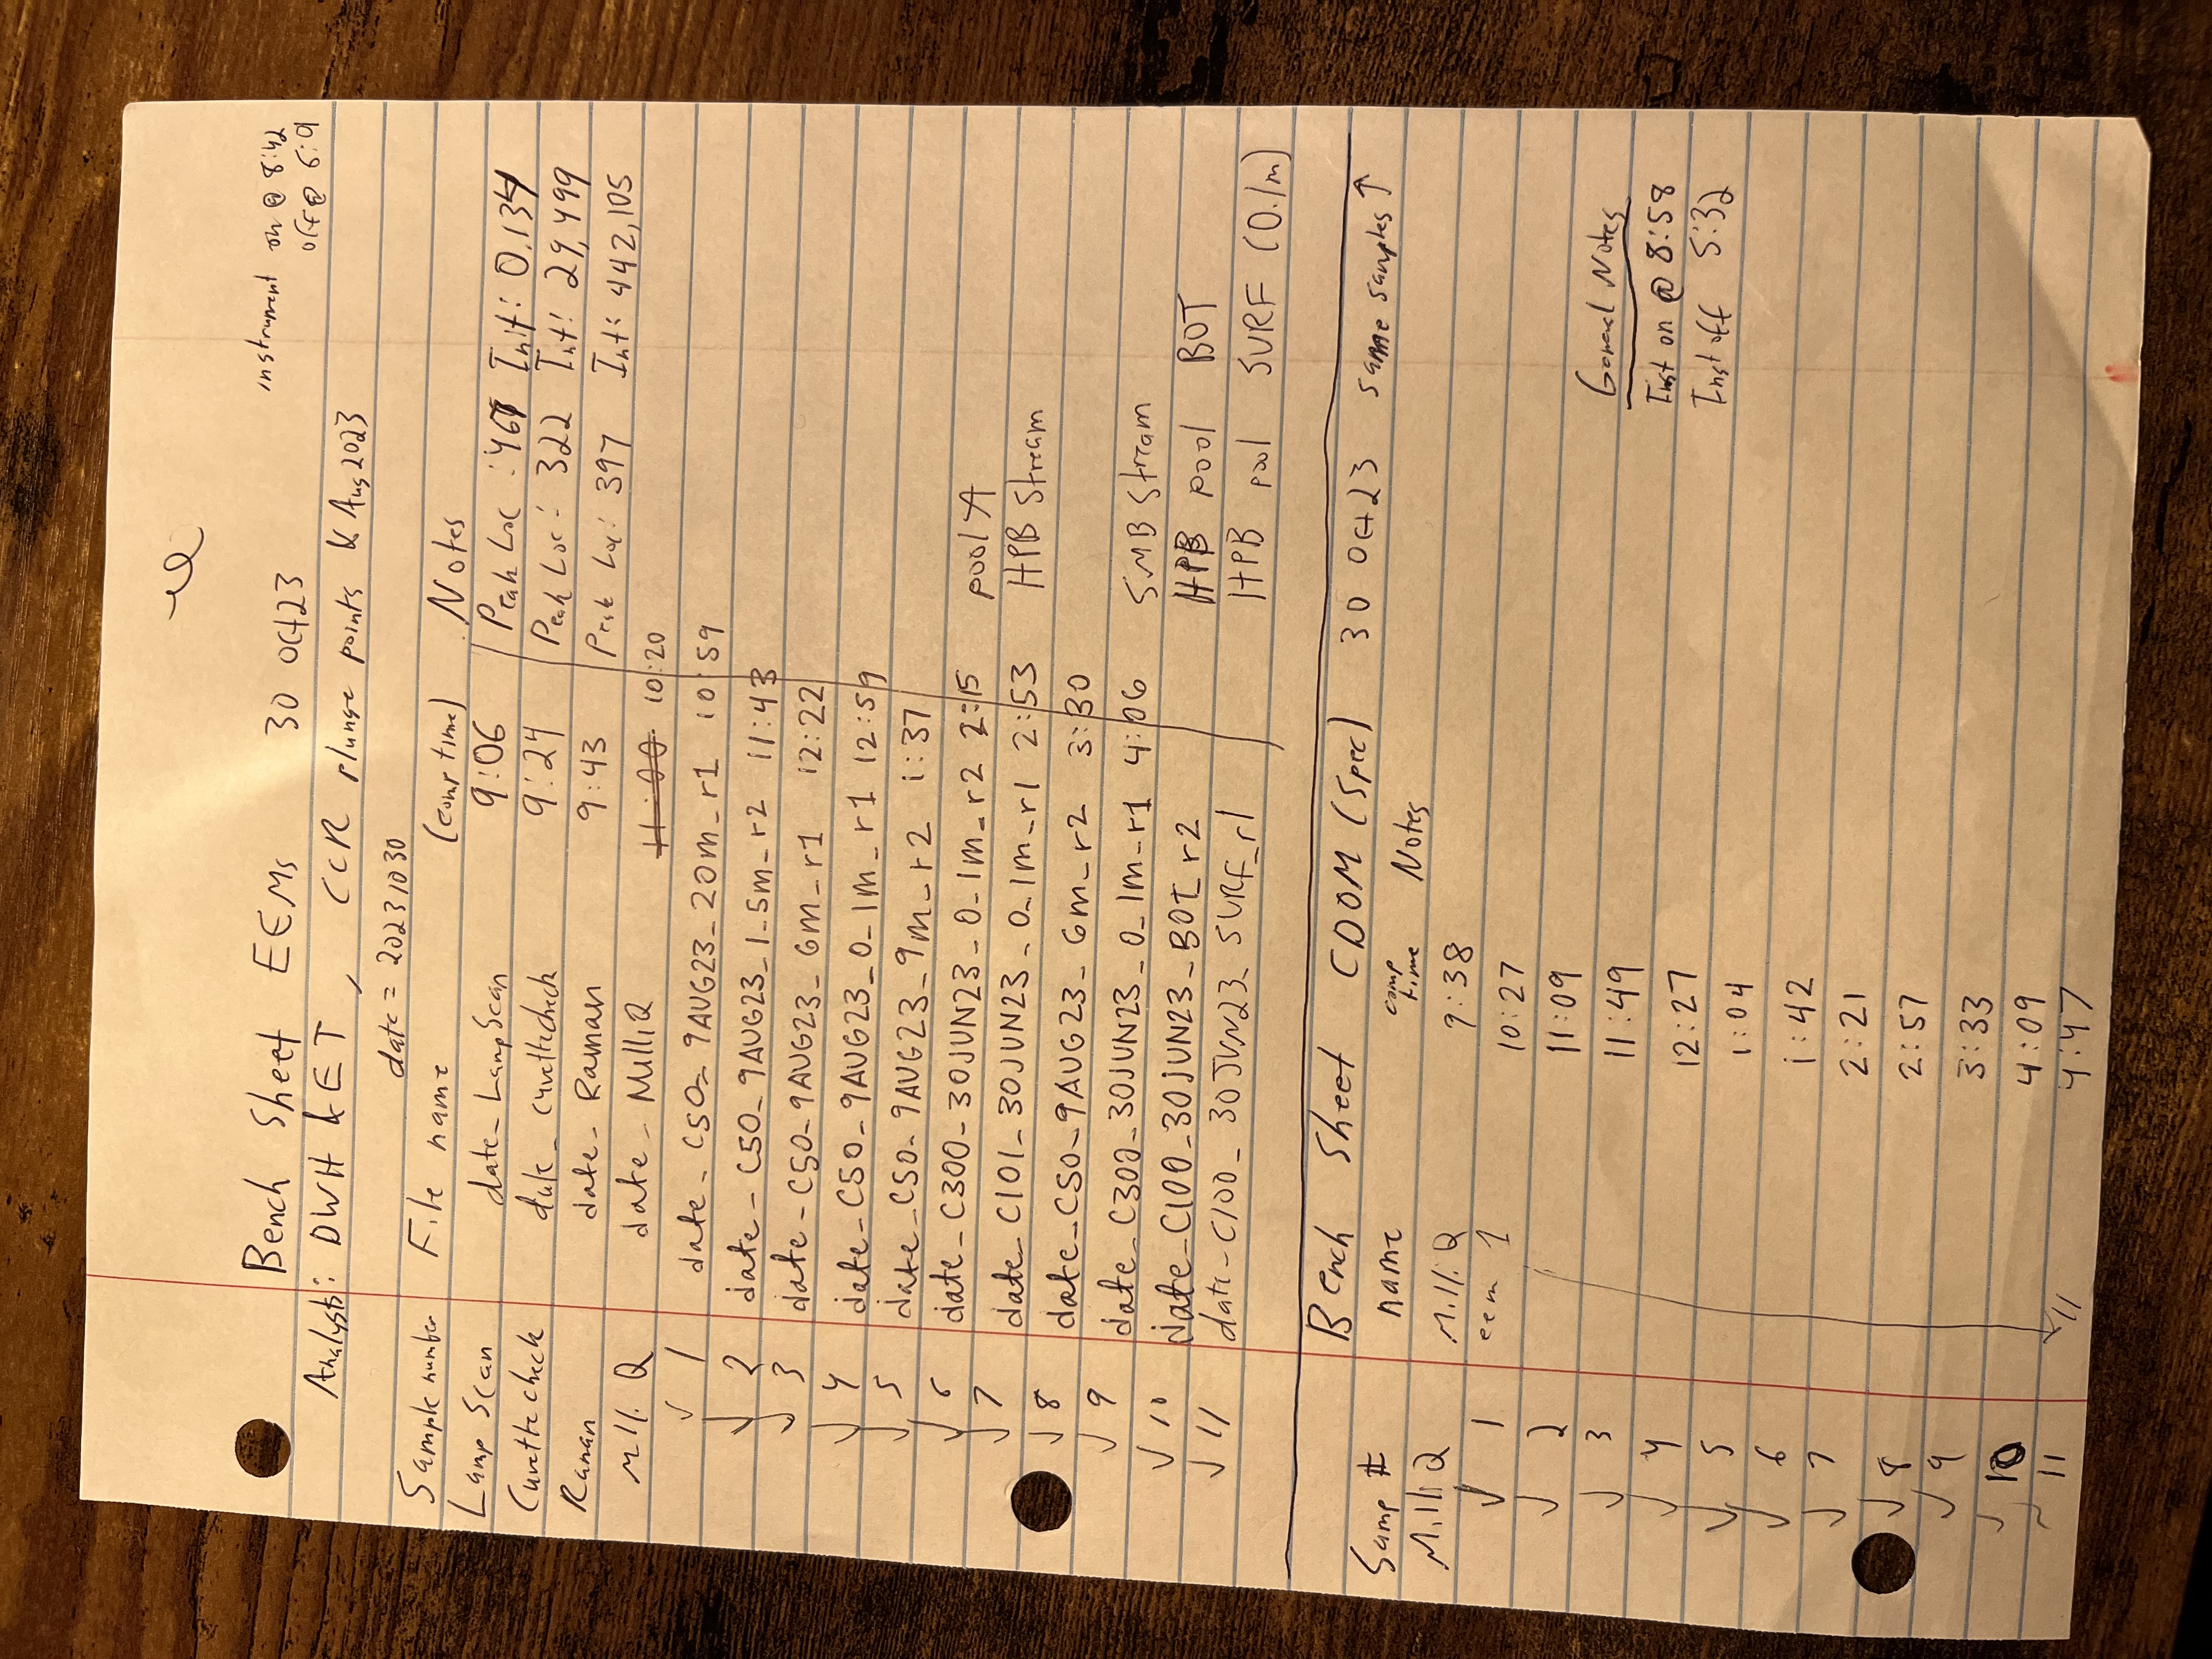 Bench Sheet EEMs 30 Oct 23 instrument on @ 8:42
off @ 6:01
Analysts: DWH & ET, CCR plunge points & Aug 2023
date = 20231030
Sample number File name (comp time) Notes
Lamp Scan date_LampScan 9:06 Peak Loc: 467 Init: 0.134
Cuvette check date_cuvettecheck 9:24 Peak Loc: 322 Int: 29,499
Raman date_Raman 9:43 Peak Loc: 397 Int: 442,105
Milli Q date_MilliQ 11:00 10:20
✓ 1 date_C50_9AUG23_20m_r1 10:59
✓ 2 date_C50_9AUG23_1_5m_r2 11:43
✓ 3 date_C50_9AUG23_6m_r1 12:22
✓ 4 date_C50_9AUG23_0_1m_r1 12:59
✓ 5 date_C50_9AUG23_9m_r2 1:37
✓ 6 date_C300_30JUN23_0_1m_r2 2:15 pool A
✓ 7 date_C101_30JUN23_0_1m_r1 2:53 HPB Stream
✓ 8 date_C50_9AUG23_6m_r2 3:30
✓ 9 date_C300_30JUN23_0_1m_r1 4:06 SMB Stream
✓ 10 date_C100_30JUN23_BOT_r2 HPB pool BOT
✓ 11 date_C100_30JUN23_SURF_r1 HPB pool SURF (0.1m)
Bench Sheet CDOM (Spec) 30 Oct 23 same samples ↑
Samp # name comp time Notes
Milli Q Milli Q 9:38
✓ 1 eem 1 10:27
✓ 2 11:09
✓ 3 11:49
✓ 4 12:27
✓ 5 1:04
✓ 6 1:42
✓ 7 2:21
✓ 8 2:57
✓ 9 3:33
✓ 10 4:09
✓ 11 11 4:47
General Notes
Inst on @ 8:58
Inst off 5:32